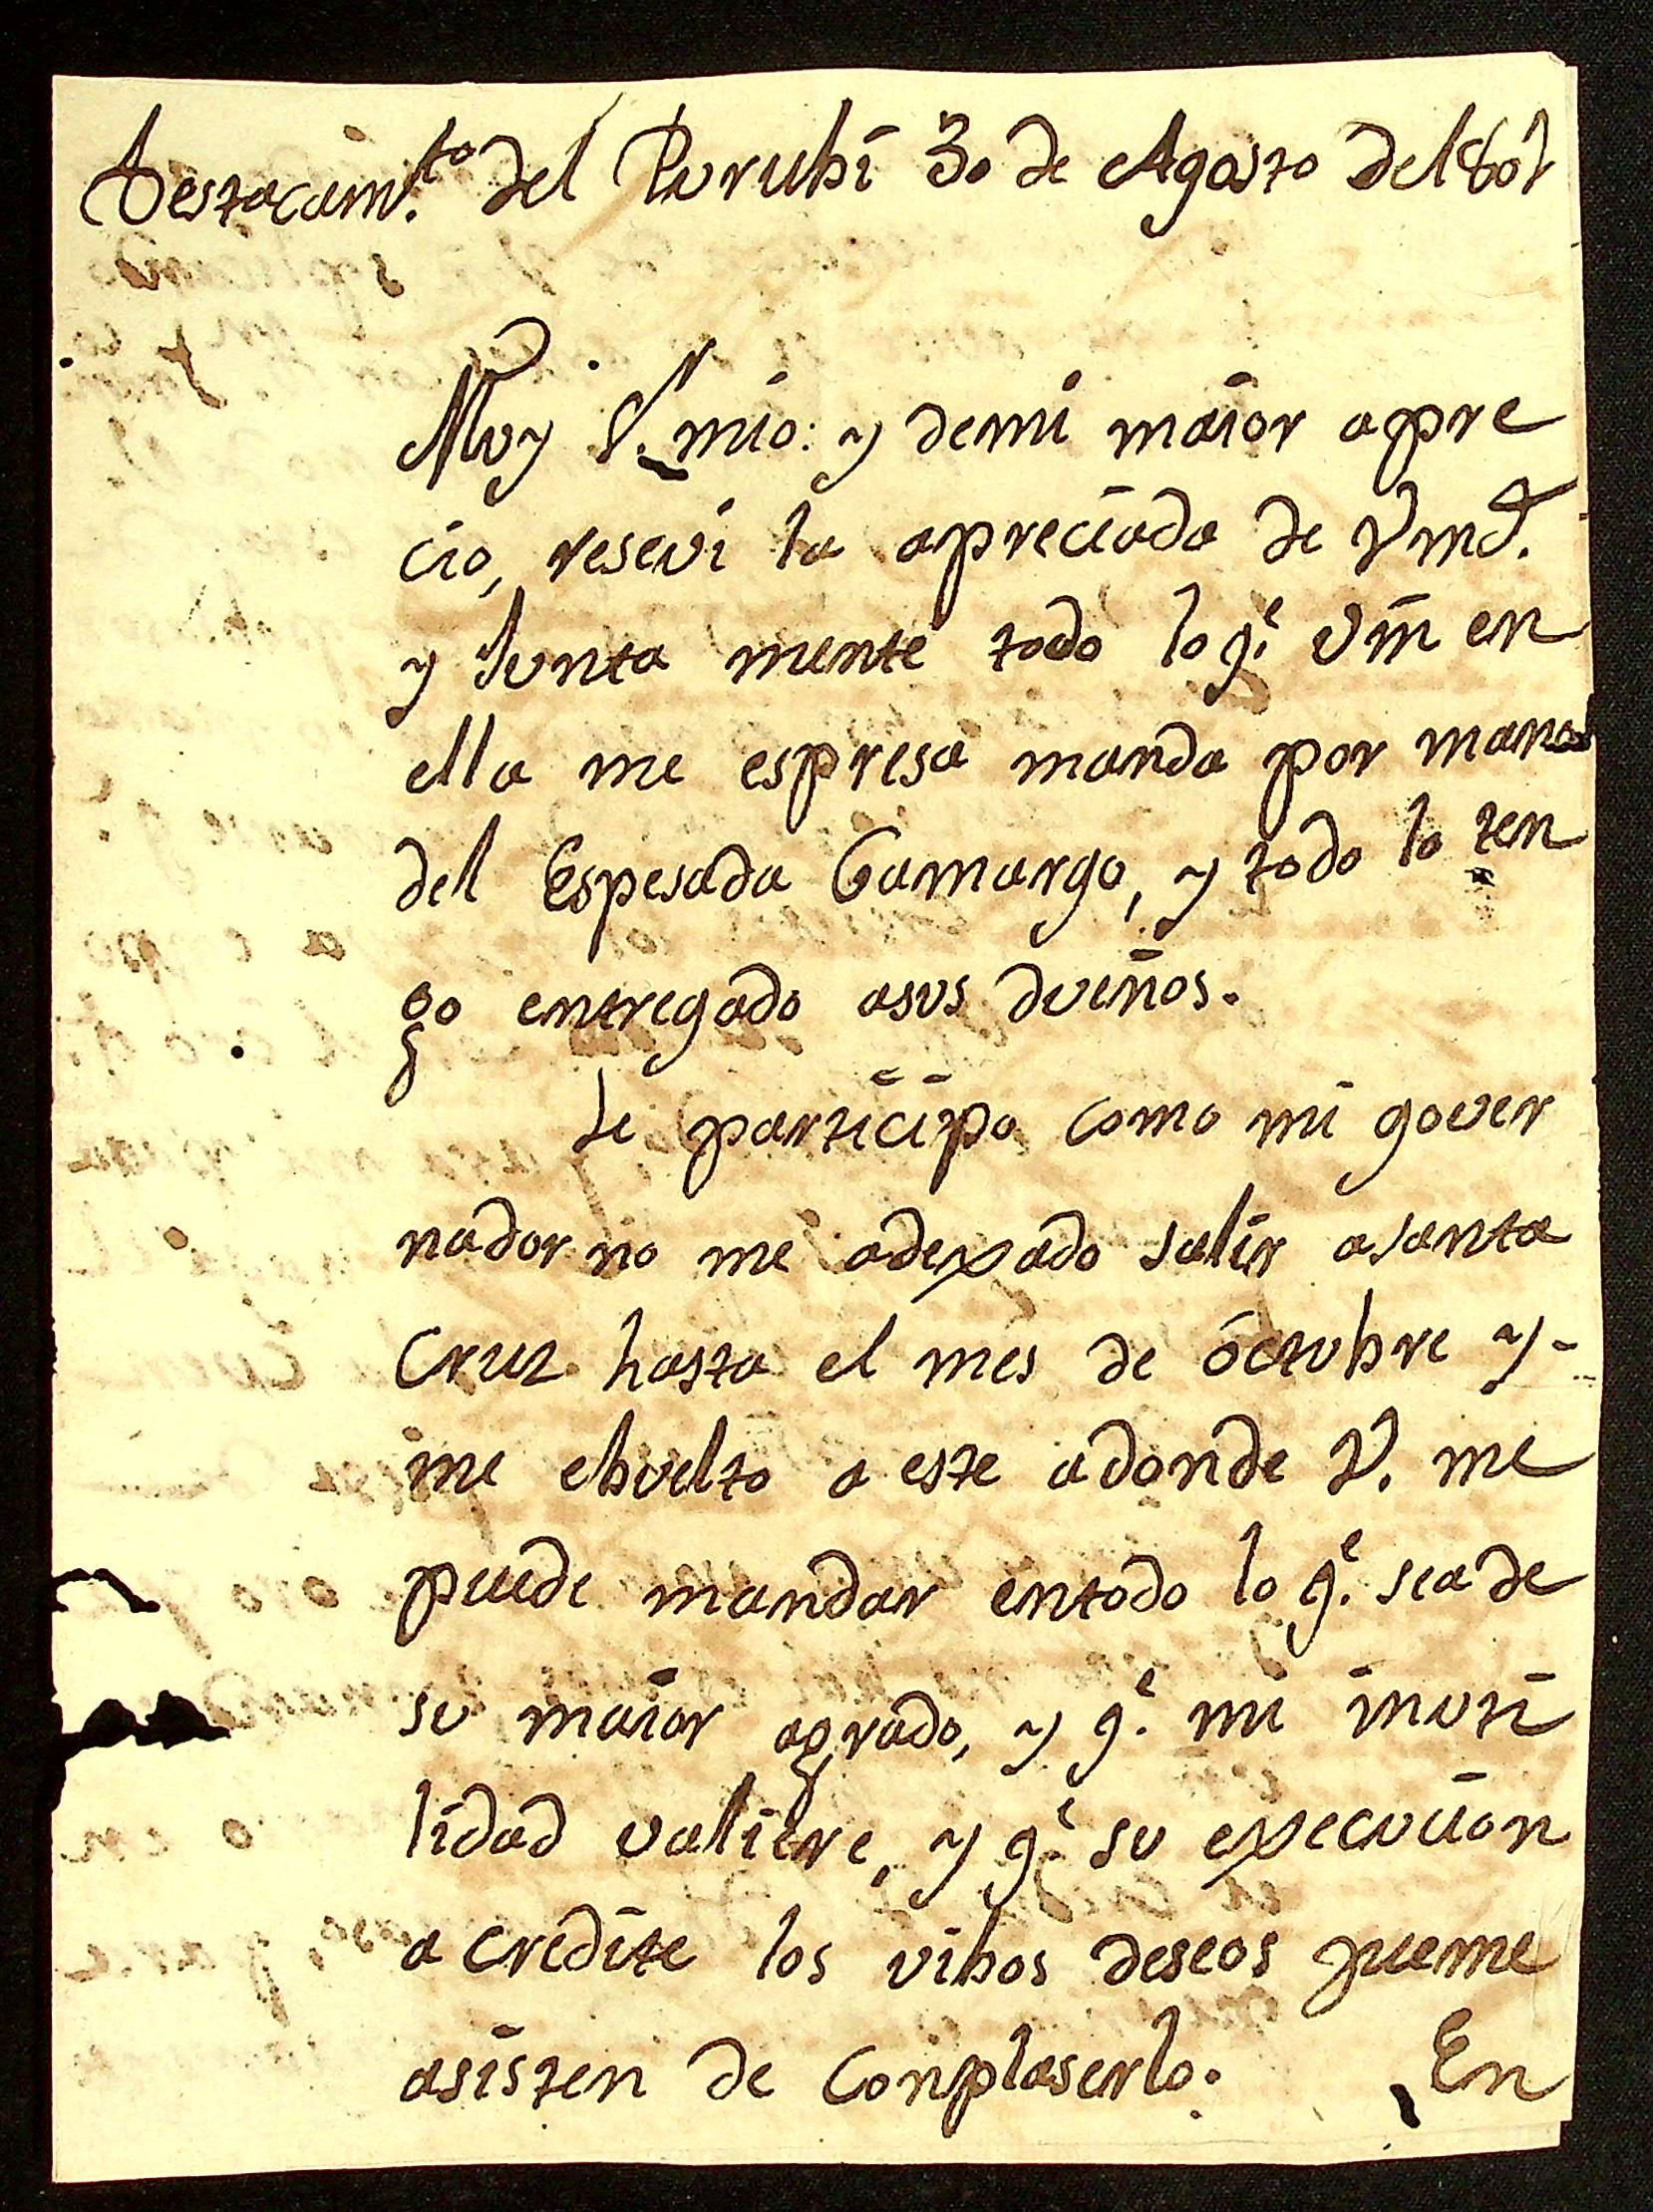 Destacam.to del Purubi 30 de Agosto de 1801
Muy S.r mio: y demi maior apre
cio, resevi la apreciada de Vmd.
y Junta mente todo lo q.e Vm en
ella me espresa manda por mano
del Espesada Camargo, y todo lo ten
go entregado asus dueños.
Le participo como mi gover
nador no me adexado salir asanta
Cruz hasta el mes de octubre y-
me ebuelto a este adonde V. me
puede mandar entodo lo q.e sea de
su maior agrado, y q.e mi inuti
lidad valiere, y q.e su execucion
a credite los vibos deseos queme
asisten de Conplaserlo. En